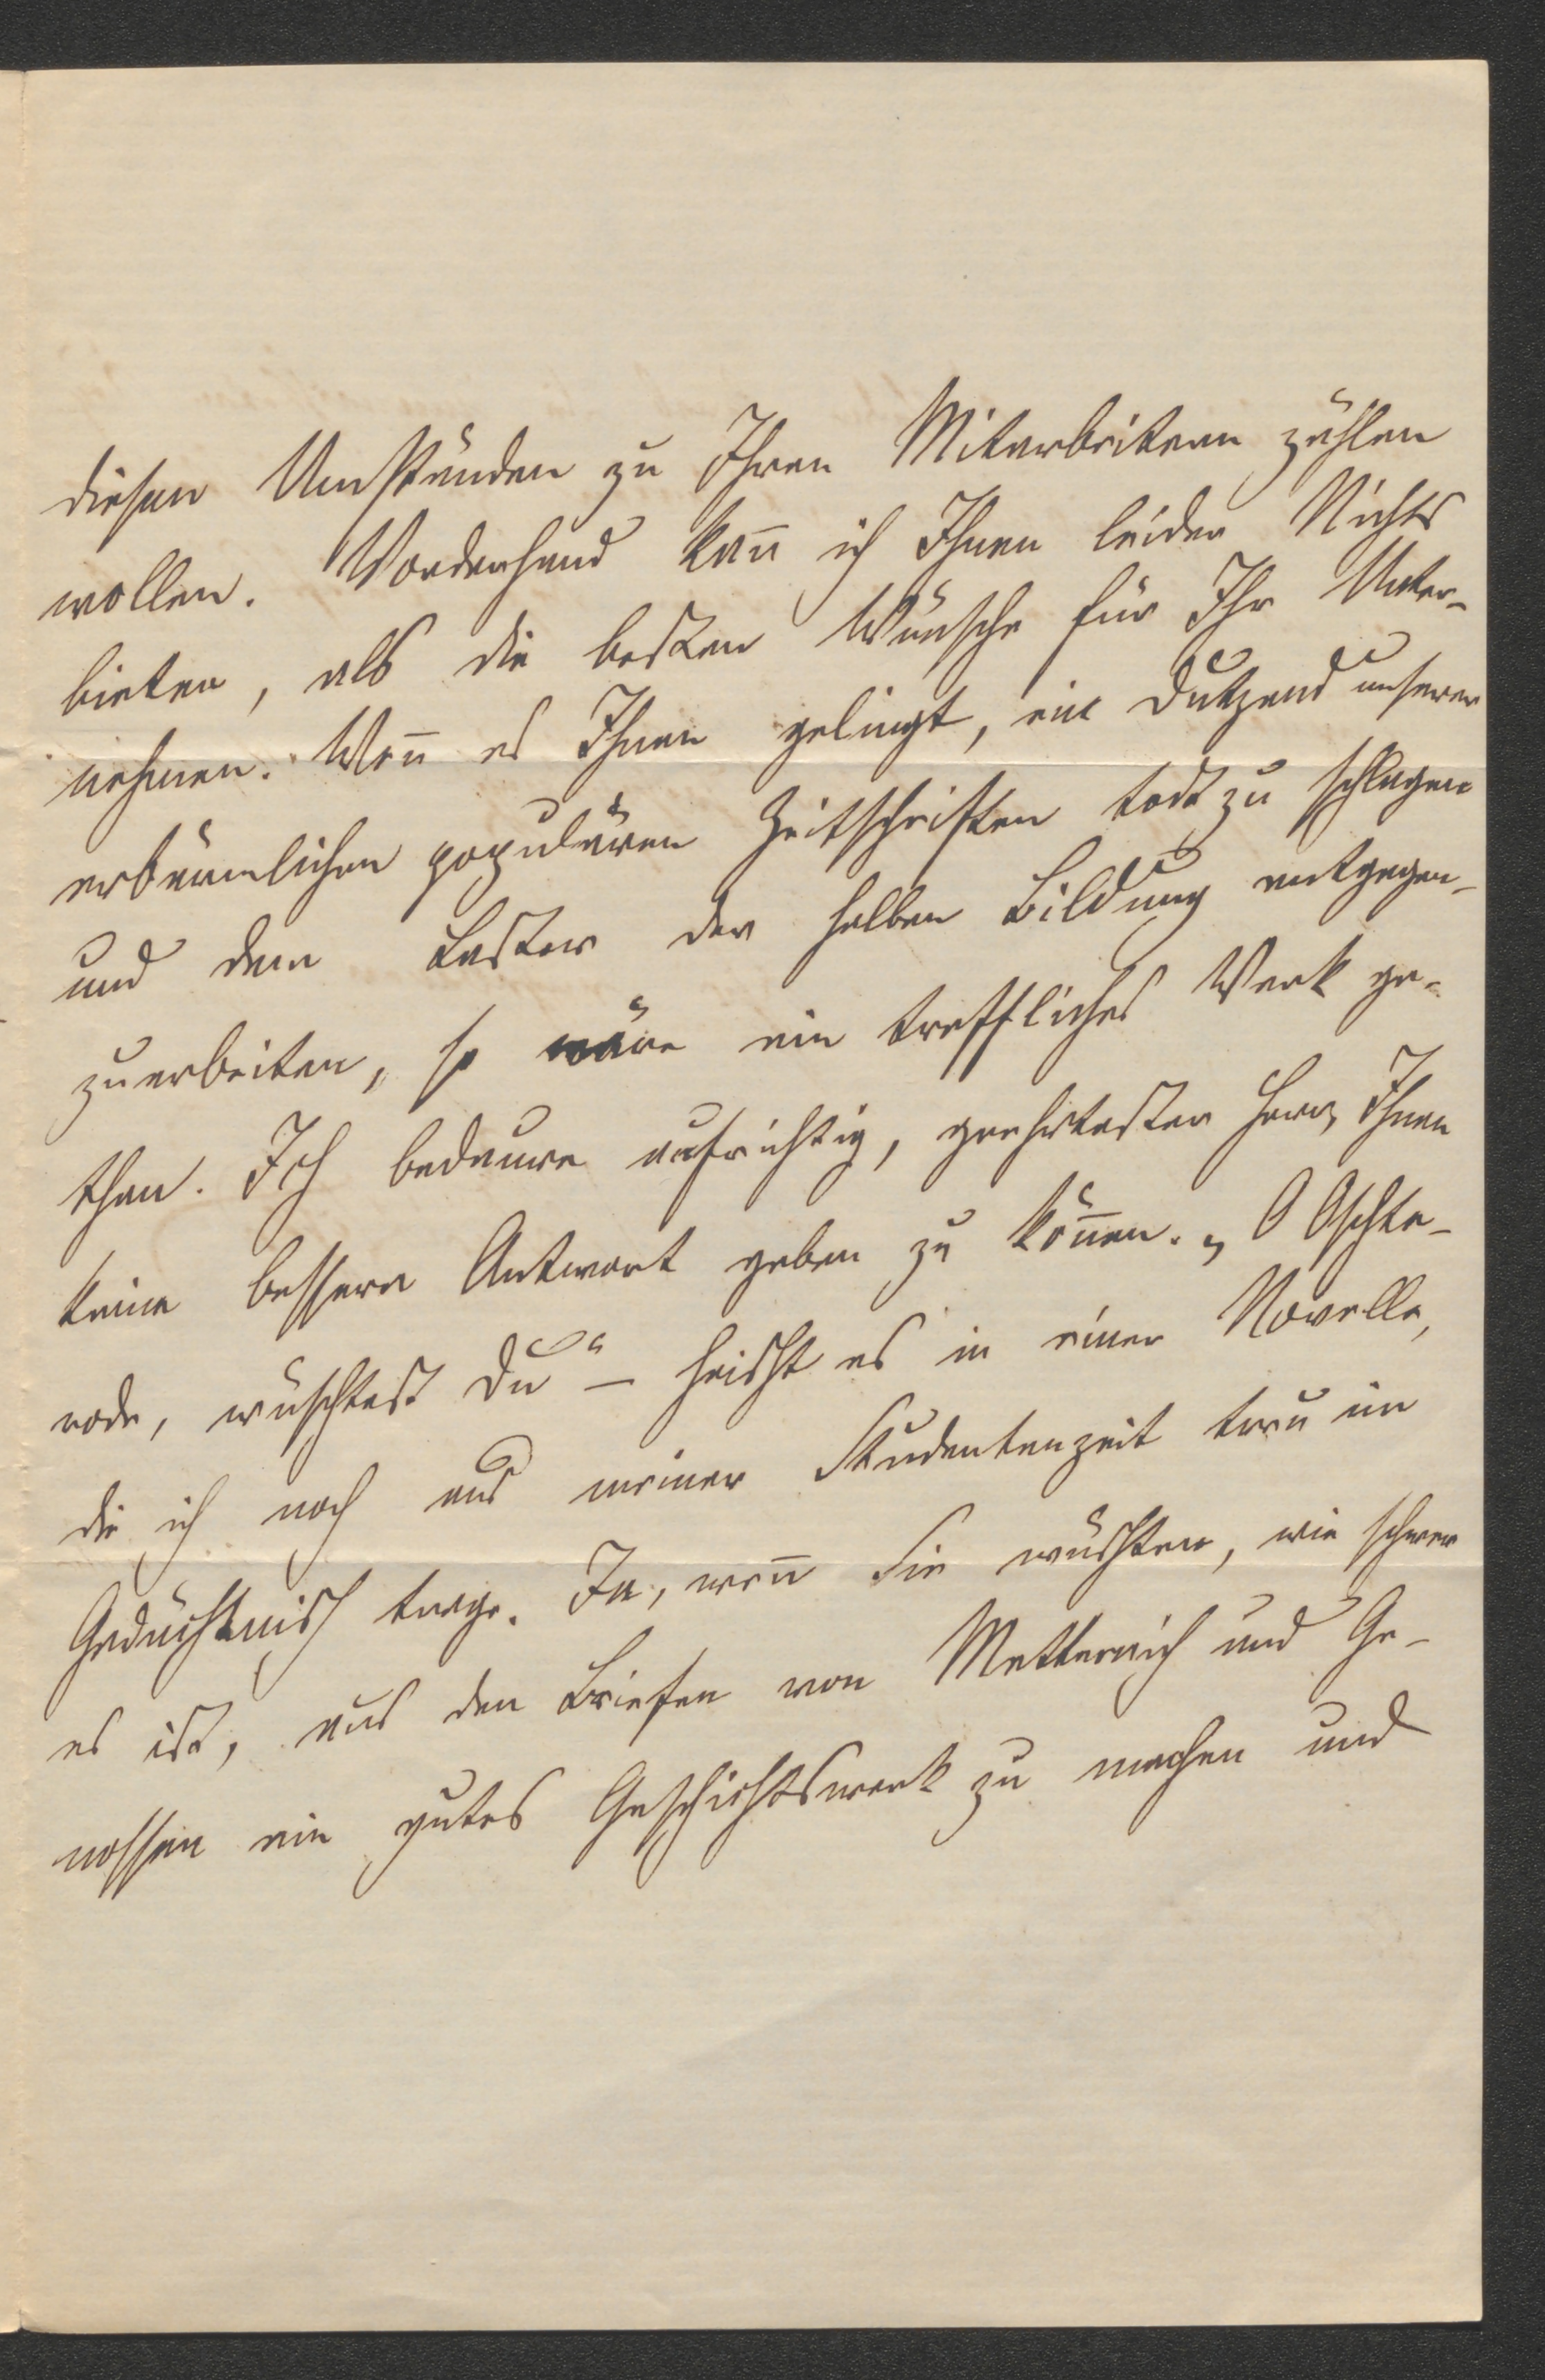 diesen Umständen zu Ihren Mitarbeitern zählen
wollen. Vorderhand kan̄ ich Ihnen leider Nichts
bieten, als die besten Wünsche für Ihr Unter-
nehmen. Wen̄ es Ihnen gelingt, ein Dutzend unserer
erbärmlichen populären Zeitschriften todt zu schlagen
und dem Laster der halben Bildung entgegen-
zuarbeiten, so wäre ein treffliches Werk ge-
than. Ich bedaure aufrichtig, geehrtester Herr, Ihnen
keine bessere Antwort geben zu kön̄en. „O Aschte-
rode, wüschtest Du“ – heißt es in einer Novelle,
die ich noch aus meiner Studentenzeit treu im
Gedächtniß trage. Ja, wen̄ Sie wüßten, wie schwer
es ist, aus den Briefen von Metternich und Ge-
nossen ein gutes Geschichtswerk zu machen und